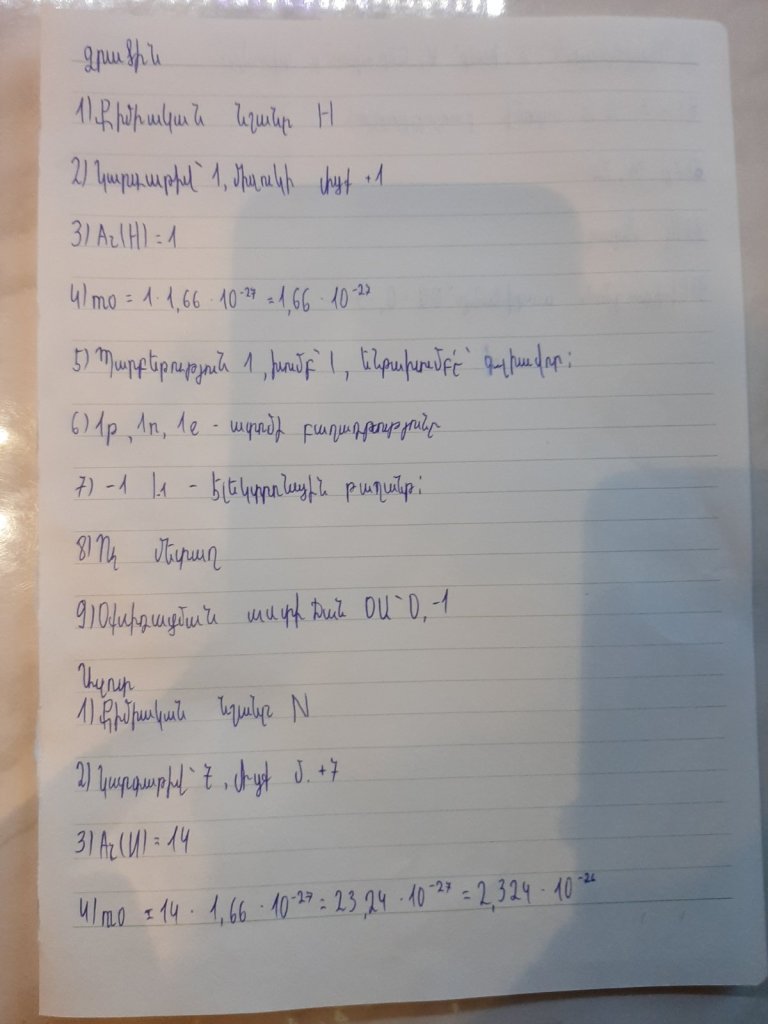 Ջրածին
1) Քիմիական նշանը H
2) Կարգաթիվ՝ 1, միջուկի լիցք +1
3) Ar(H) = 1
4) m0 = 1 · 1,66 · 10⁻²⁷ = 1,66 · 10⁻²⁷
5) Պարբերություն 1, խումբ՝ I, ենթախումբէ՝ գլխավոր:
6) 1p, 1n, 1e - ատոմի բաղադրությունը
7) -1 - Էլեկտրոնային թաղանթ:
8) Ոչ մետաղ
9) Օքսիդացման աստիճան ՕԱ՝ 0, -1
Ազոտ
1) Քիմիական նշանը N
2) Կարգաթիվ՝ 7, լիցք մ. +7
3) Ar(N) = 14
4) m0 = 14 · 1,66 · 10⁻²⁷ = 23,24 · 10⁻²⁷ = 2,324 · 10⁻²⁶